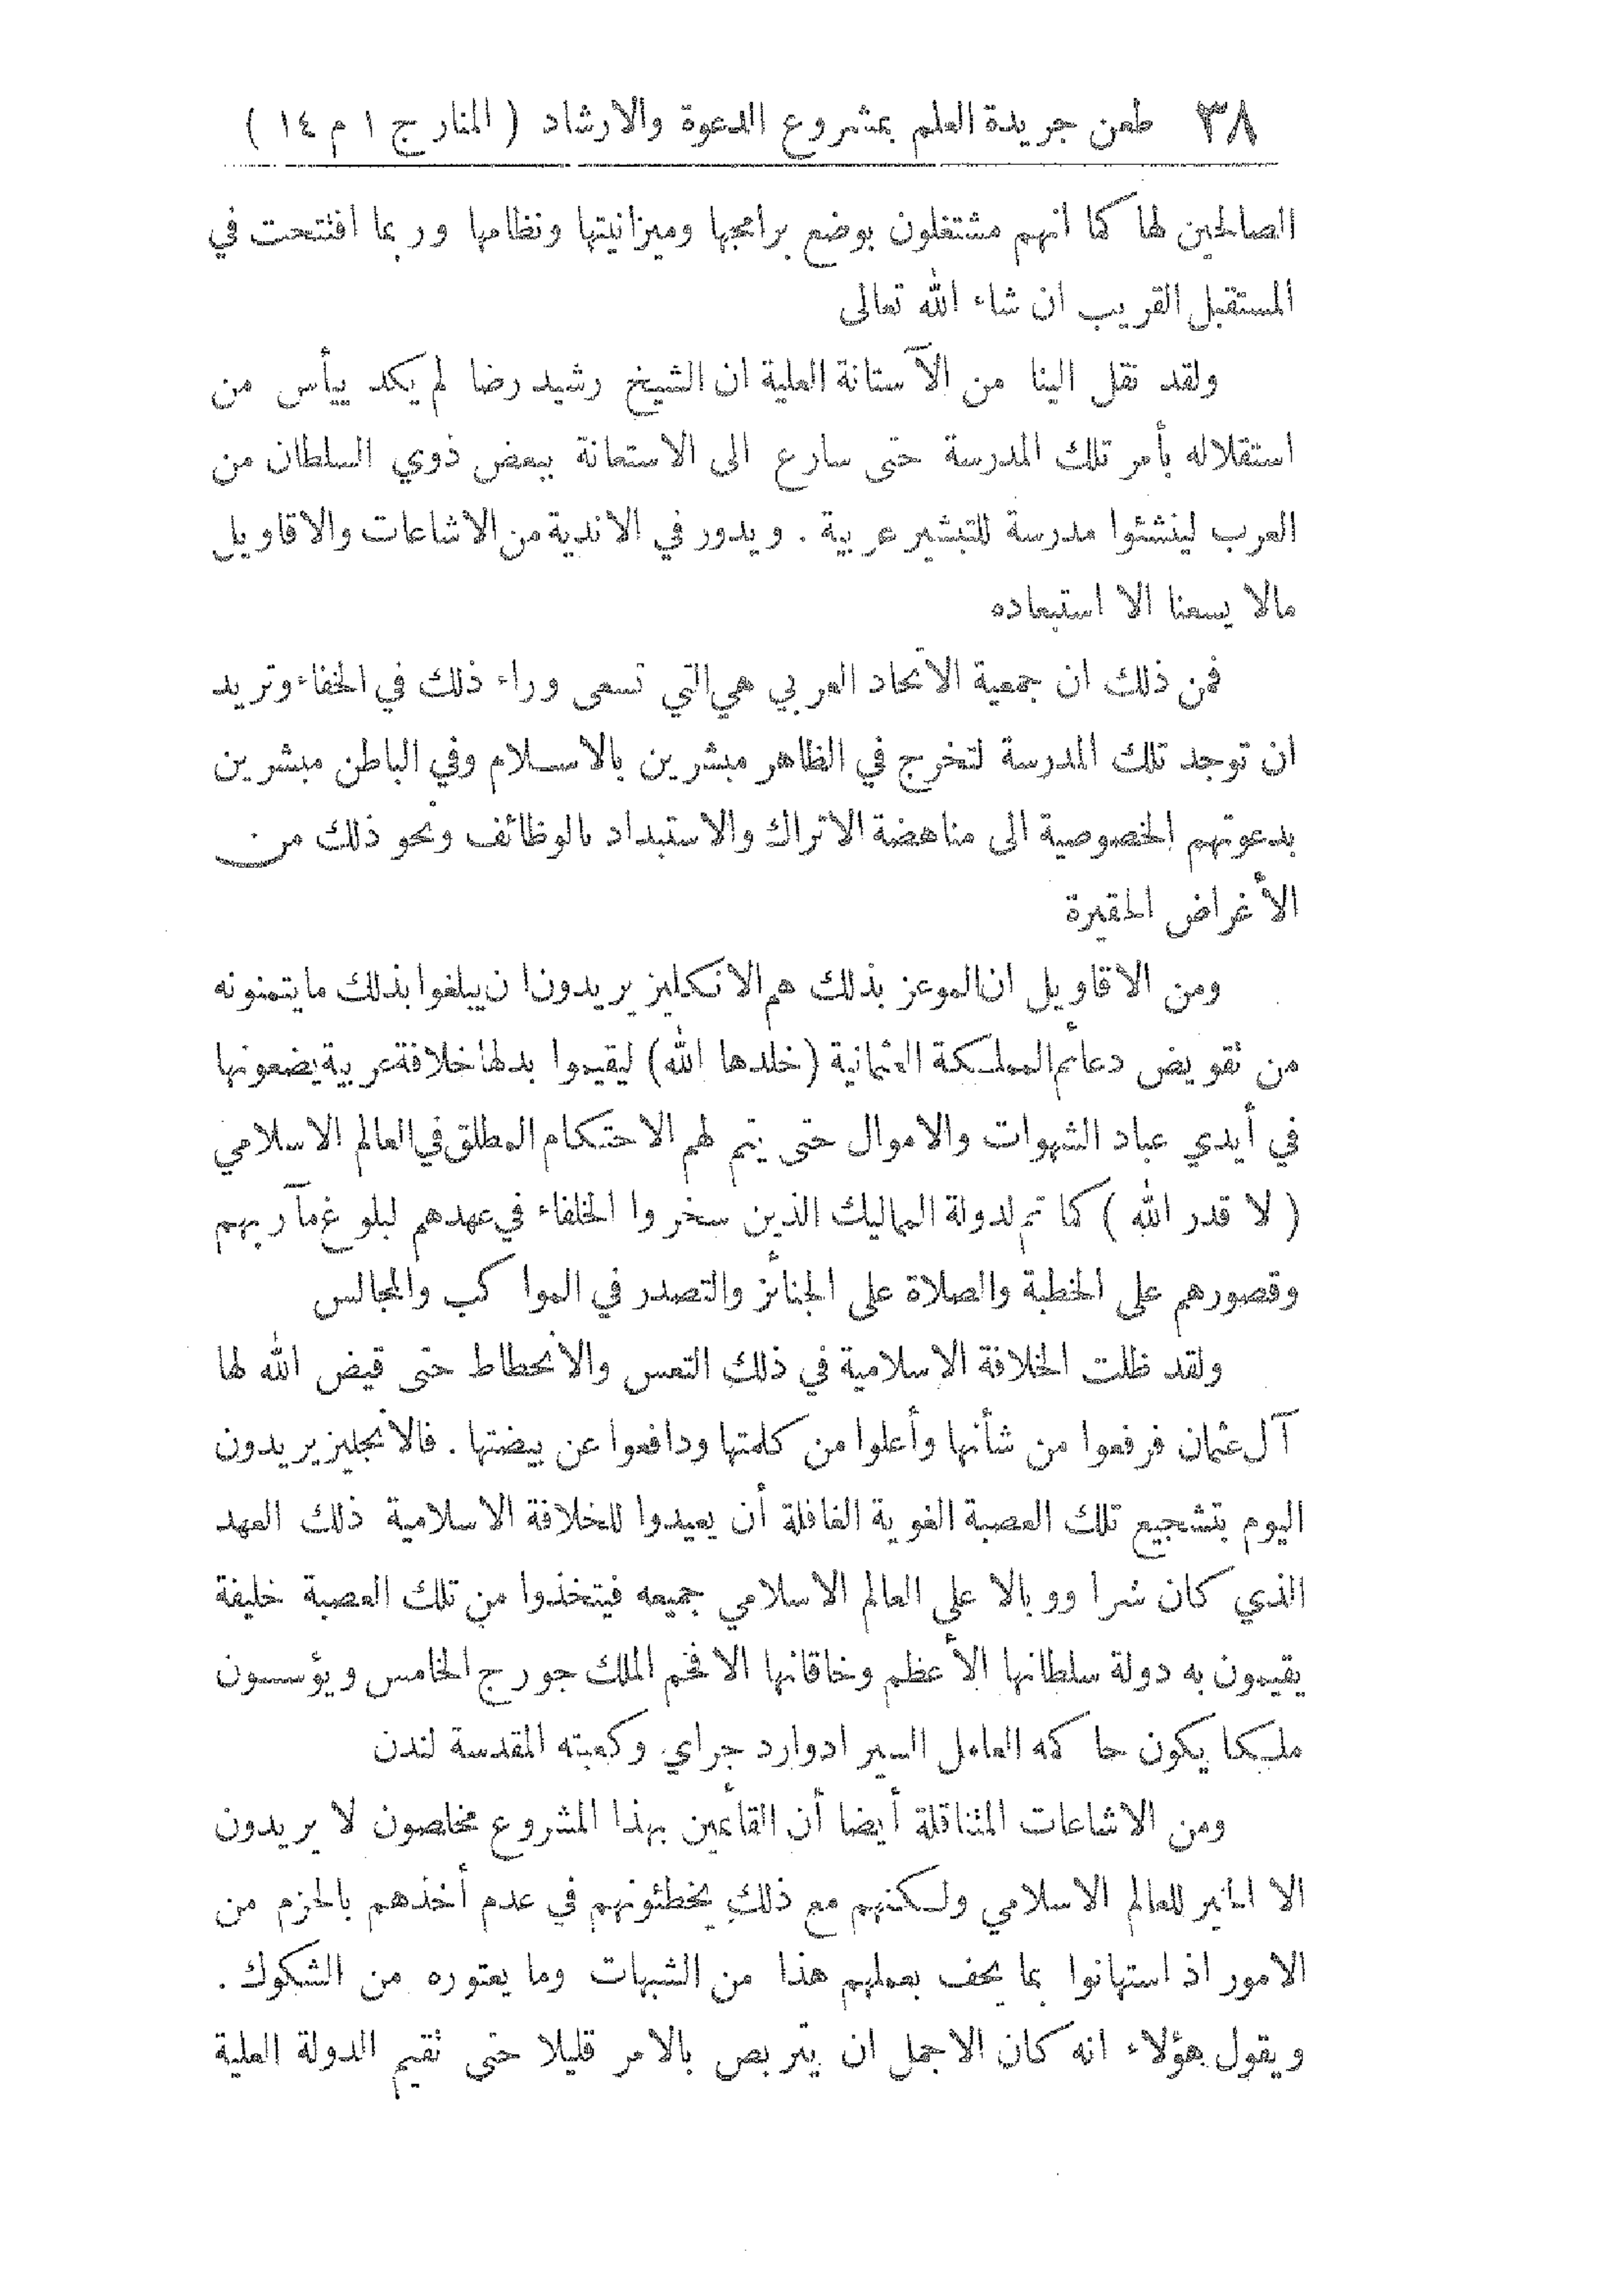 ٣٨ طعن جريدة العلم بمشروع الدعوة والارشاد ( المنار ج ١ م ١٤ )
الصالحين لها كما انهم مشتغلون بوضع برامجها وميزانيتها ونظامها وربما افتتحت في
المستقبل القريب ان شاء الله تعالى
ولقد نقل الينا من الآستانة العلية ان الشيخ رشيد رضا لم يكد ييأس من
استقلاله بأمر تلك المدرسة حتى سارع الى الاستعانة ببعض ذوي السلطان من
العرب لينشئوا مدرسة للتبشير عربية . ويدور في الاندية من الاشاعات والاقاويل
مالا يسعنا الا استبعاده
فمن ذلك ان جمعية الاتحاد العربي هي التي تسعى وراء ذلك في الخفاء وتريد
ان توجد تلك المدرسة لتخرج في الظاهر مبشرين بالاسلام وفي الباطن مبشرين
بدعوتهم الخصوصية الى مناهضة الاتراك والاستبداد بالوظائف ونحو ذلك من
الأغراض الحقيرة
ومن الاقاويل ان الموعز بذلك هم الانكليز يريدون ان يبلغوا بذلك ما يتمنونه
من تقويض دعائم المملكة العثمانية (خلدها الله) ليقيموا بدلها خلافة عربية يضعونها
في أيدي عباد الشهوات والاموال حتى يتم لهم الاحتكام المطلق في العالم الاسلامي
( لا قدر الله ) كما تم لدولة المماليك الذين سخروا الخلفاء في عهدهم لبلوغ مآربهم
وقصورهم على الخطبة والصلاة على الجنائز والتصدر في المواكب والمجالس
ولقد ظلت الخلافة الاسلامية في ذلك التعس والانحطاط حتى قيض الله لها
آل عثمان فرفعوا من شأنها وأعلوا من كلمتها ودافعوا عن بيضتها . فالانجليز يريدون
اليوم بتشجيع تلك العصبة الغوية الغافلة أن يعيدوا للخلافة الاسلامية ذلك العهد
الذي كان شرا ووبالا على العالم الاسلامي جميعه فيتخذوا من تلك العصبة خليفة
يقيمون به دولة سلطانها الأعظم وخاقانها الافخم الملك جورج الخامس ويؤسسون
ملكا يكون حاكمه العامل السير ادوارد جراي وكعبته المقدسة لندن
ومن الاشاعات المتناقلة أيضا أن القائمين بهذا المشروع مخلصون لا يريدون
الا الخير للعالم الاسلامي ولكنهم مع ذلك يخطئونهم في عدم أخذهم بالحزم من
الامور اذ استهانوا بما يحف بعملهم هذا من الشبهات وما يعتوره من الشكوك .
ويقول هؤلاء انه كان الاجمل ان يتربص بالامر قليلا حتى تقيم الدولة العلية